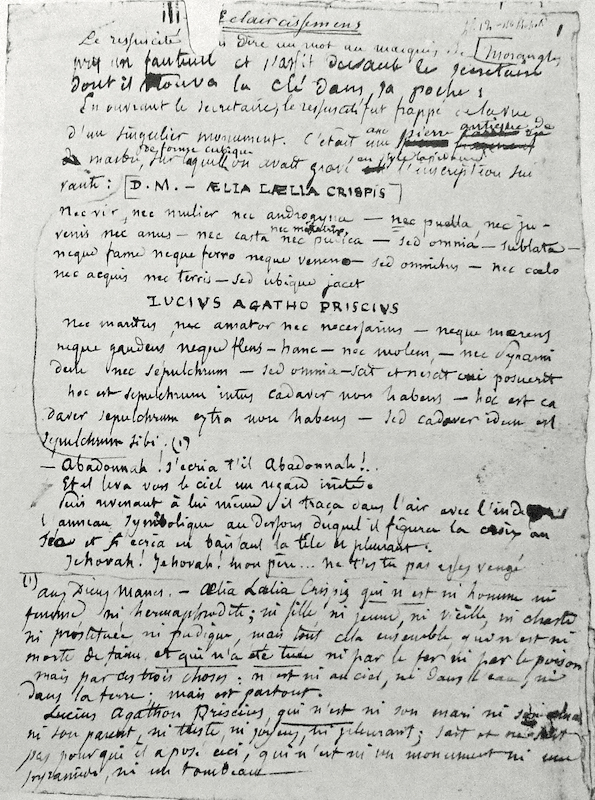 III Eclaircissemens
Le ressuscité dire un mot au marquis de Morcenglos
prit un fauteuil et s'assit devant le secrétaire
dont il trouva la clé dans sa poche :
En ouvrant le secretaire, le ressuscité fut frappé de la vue
d'un singulier monument. C'était une pierre antique de
de forme cubique
marbre, sur laquelle on avait gravé l'inscription sui
vante : [D. M. — ÆLIA LÆLIA CRISPIS]
nec vir, nec mulier nec androgyna — nec puella, nec ju-
venis nec anus — nec casta nec meretrix, nec pudica — sed omnia — sublata —
neque fame neque ferro neque veneno — sed omnibus — nec cœlo
nec aquis nec terris — sed ubique jacet
LUCIVS AGATHO PRISCIVS
nec maritus nec amator nec necessarius — neque mœrens
neque gaudens, neque flens — hanc — nec molem, — nec pyrami
dem nec sepulchrum — sed omnia — scit et nescit cui posuerit
hoc est sepulchrum intus cadaver non habens — hoc est ca
daver sepulchrum extra non habens — sed cadaver idem est
sepulchrum sibi. (1)
— Abadonnah ! s'écria t'il Abadonnah !..
Et il leva vers le ciel un regard
Puis revenant à lui même, il traça dans l'air avec l'index
l'anneau symbolique au dessous duquel il figura la croix
et s'écria en baissant la tête et pleurant :
Jehovah ! Jehovah ! mon père... ne t'es tu pas assez vengé
(1) aux Dieux Manes. — Ælia Lælia Crispis qui n'est ni homme ni
femme, ni hermaphrodite ; ni fille, ni jeune, ni vieille, ni chaste
ni prostituée ni pudique, mais tout cela ensemble qui n'est ni
morte de faim, et qui n'a été tuée ni par le fer ni par le poison
mais par ces trois choses : n'est ni au ciel, ni dans l'eau, ni
dans la terre ; mais est partout.
Lucius Agathon Priscius, qui n'est ni son mari ni son amant
ni son parent, ni triste, ni joyeux, ni pleurant ; sait et ne sait
pas pourquoi il a posé ceci, qui n'est ni un monument ni une
pyramide, ni un tombeau —